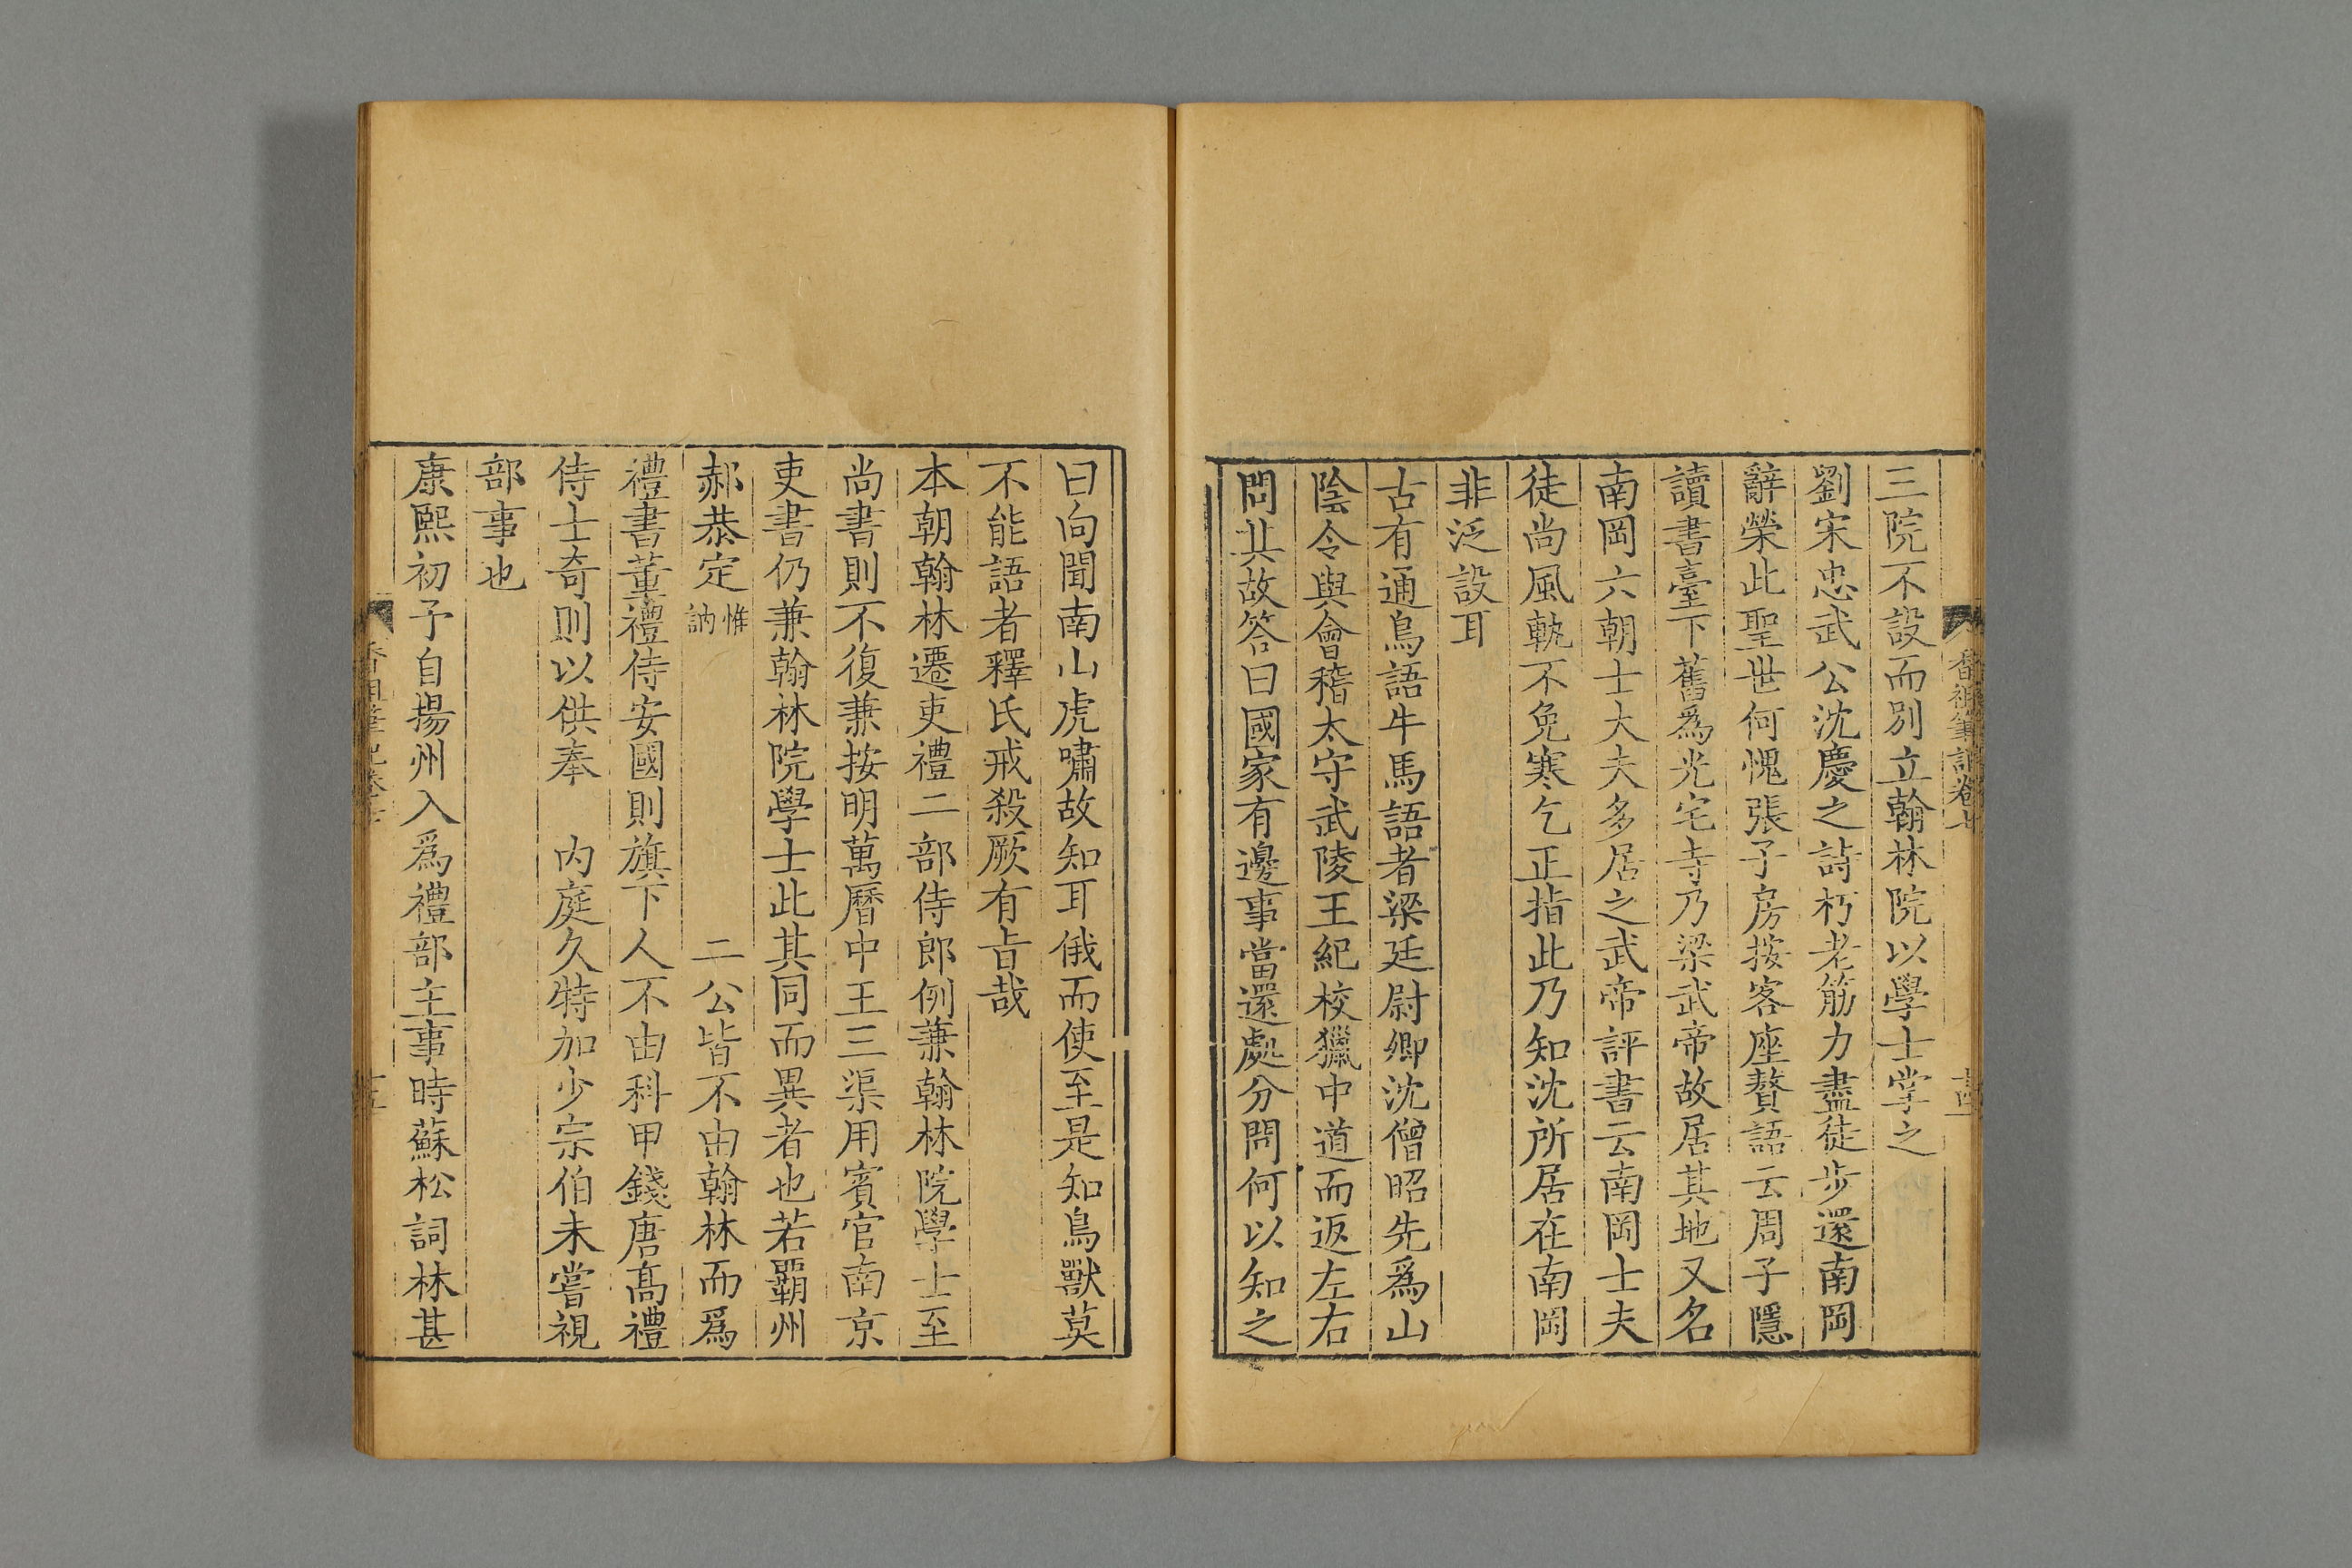 香祖筆記卷七
十四
三院不設而別立翰林院以學士掌之
劉宋忠武公沈慶之詩朽老筋力盡徒步還南岡
辭榮此聖世何愧張子房按客座贅語云周子隱
讀書臺下舊爲光宅寺乃梁武帝故居其地又名
南岡六朝士大夫多居之武帝評書云南岡士夫
徒尚風軌不免寒乞正指此乃知沈所居在南岡
非泛設耳
古有通鳥語牛馬語者梁廷尉卿沈僧昭先爲山
陰令與會稽太守武陵王紀校獵中道而返左右
問其故答曰國家有邊事當還處分問何以知之
曰向聞南山虎嘯故知耳俄而使至是知鳥獸莫
不能語者釋氏戒殺厥有㫖哉
本朝翰林遷吏禮二部侍郎例兼翰林院學士至
尚書則不復兼按明萬曆中王三渠用賓官南京
吏書仍兼翰林院學士此其同而異者也若霸州
郝恭定惟訥二公皆不由翰林而爲
禮書董禮侍安國則旗下人不由科甲錢唐髙禮
侍士奇則以供奉 內庭久特加少宗伯未嘗視
部事也
康熙初予自揚州入爲禮部主事時蘇松詞林甚
香祖筆記卷七
十五